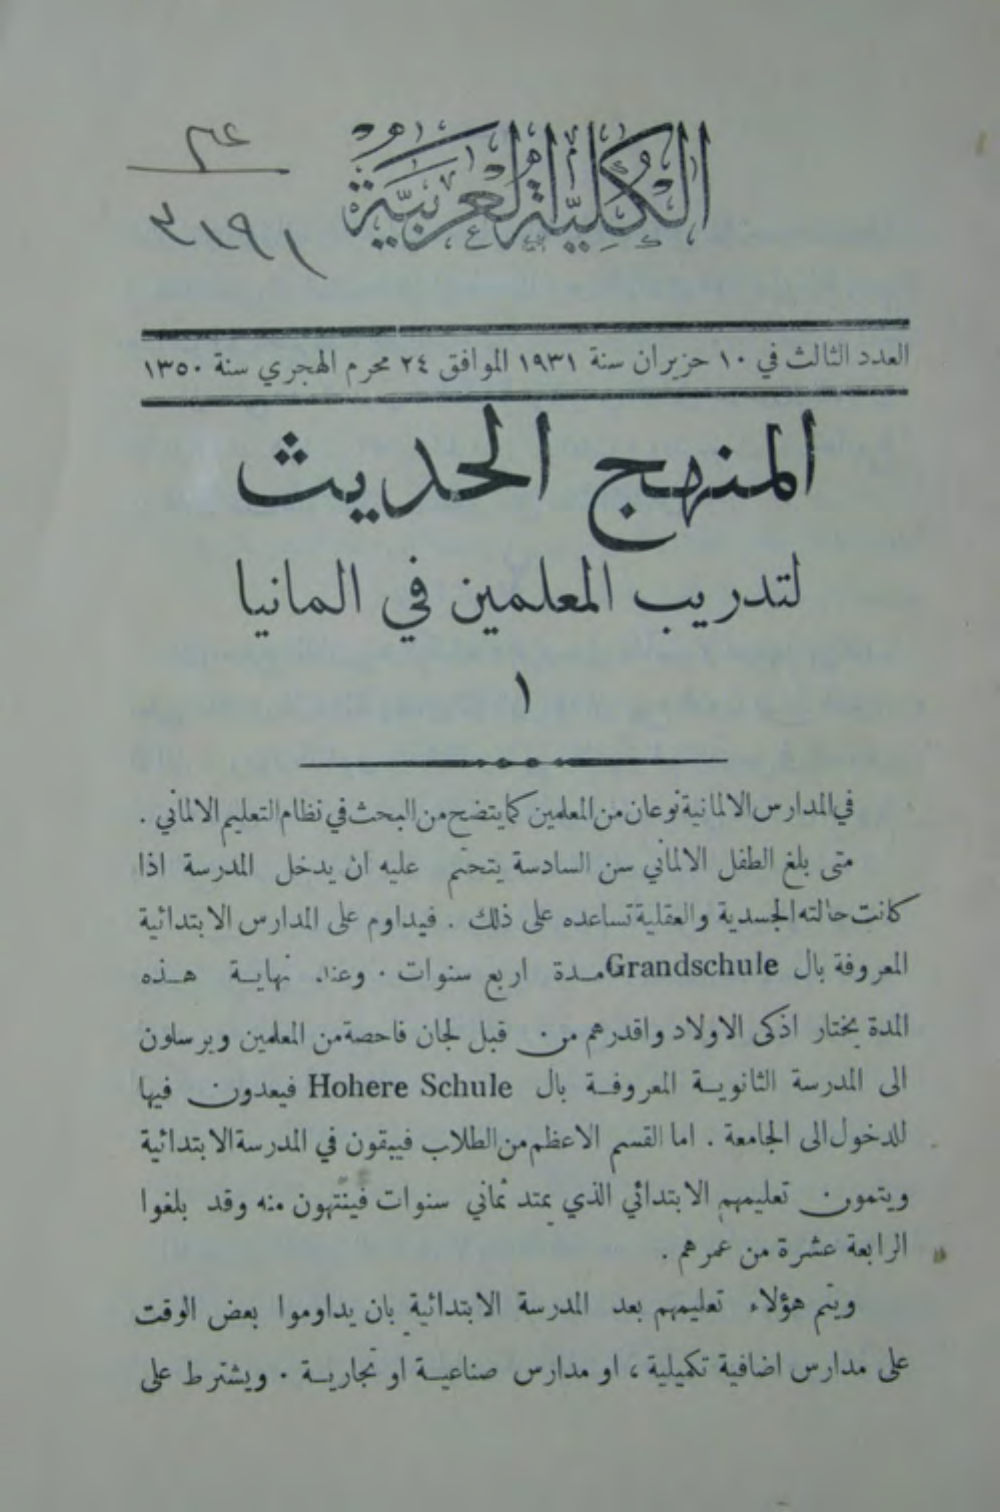 الكلية العربية
١٩٣١
العدد الثالث في ١٠ حزيران سنة ١٩٣١ الموافق ٢٤ محرم الهجري سنة ١٣٥٠
المنهج الحديث
لتدريب المعلمين في المانيا
١
في المدارس الالمانية نوعان من المعلمين كما يتضح من البحث في نظام التعليم الالماني .
متى بلغ الطفل الالماني سن السادسة يتحتم عليه ان يدخل المدرسة اذا
كانت حالته الجسدية والعقلية تساعده على ذلك . فيداوم على المدارس الابتدائية
المعروفة بال Grandschule مدة اربع سنوات . وعند نهاية هذه
المدة يختار اذكى الاولاد واقدرهم من قبل لجان فاحصة من المعلمين ويرسلون
الى المدرسة الثانوية المعروفة بال Hohere Schule فيعدون فيها
للدخول الى الجامعة . اما القسم الاعظم من الطلاب فيبقون في المدرسة الابتدائية
ويتمون تعليمهم الابتدائي الذي يمتد ثماني سنوات فينتهون منه وقد بلغوا
الرابعة عشرة من عمرهم .
ويتم هؤلاء تعليمهم بعد المدرسة الابتدائية بان يداوموا بعض الوقت
على مدارس اضافية تكميلية ، او مدارس صناعية او تجارية . ويشترط على